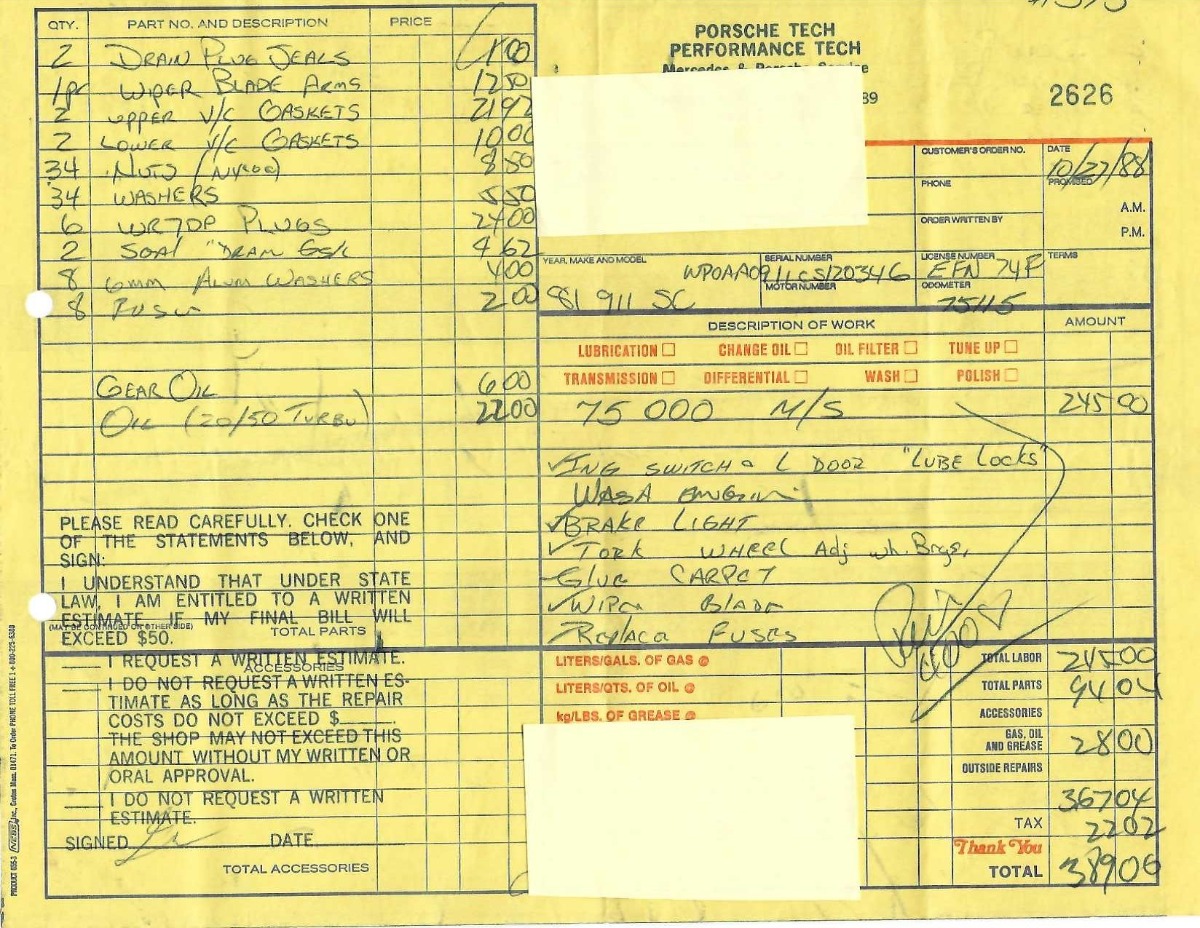 QTY. PART NO. AND DESCRIPTION PRICE
2 DRAIN PLUG SEALS 1 00
1pr WIPER BLADE ARMS 12 50
2 UPPER V/C GASKETS 21 92
2 LOWER V/C GASKETS 10 00
34 NUTS 8 50
34 WASHERS 5 50
6 WR7DP PLUGS 24 00
2 DRAIN 4 62
8 6mm ALUM WASHERS 4 00
8 2 00
GEAR OIL 6 00
OIL (20/50 TURBO) 22 00
PLEASE READ CAREFULLY. CHECK ONE
OF THE STATEMENTS BELOW, AND
SIGN:
I UNDERSTAND THAT UNDER STATE
LAW, I AM ENTITLED TO A WRITTEN
ESTIMATE IF MY FINAL BILL WILL
(MAY BE CONTINUED ON OTHER SIDE)
EXCEED $50. TOTAL PARTS
I REQUEST A WRITTEN ESTIMATE.
ACCESSORIES
I DO NOT REQUEST A WRITTEN ES-
TIMATE AS LONG AS THE REPAIR
COSTS DO NOT EXCEED $
THE SHOP MAY NOT EXCEED THIS
AMOUNT WITHOUT MY WRITTEN OR
ORAL APPROVAL.
I DO NOT REQUEST A WRITTEN
ESTIMATE.
SIGNED DATE
TOTAL ACCESSORIES
PORSCHE TECH
PERFORMANCE TECH
Mercedes & Porsche Service
89
2626
CUSTOMER'S ORDER NO. DATE
10/27/88
PHONE PROMISED
A.M.
ORDER WRITTEN BY P.M.
YEAR, MAKE AND MODEL SERIAL NUMBER LICENSE NUMBER TERMS
WPOAA091 EFN 74P
MOTOR NUMBER ODOMETER
81 911 SC 75115
DESCRIPTION OF WORK AMOUNT
LUBRICATION CHANGE OIL OIL FILTER TUNE UP
TRANSMISSION DIFFERENTIAL WASH POLISH
75 000 M/S 245 00
ING SWITCH & L DOOR "LUBE LOCKS"
WASH
BRAKE LIGHT
TORK WHEEL Adj wh. Brgs,
GLUE CARPET
WIPER BLADE
Replace FUSES
LITERS/GALS. OF GAS @ TOTAL LABOR 245 00
LITERS/QTS. OF OIL @ TOTAL PARTS 94 04
kg/LBS. OF GREASE @ ACCESSORIES
GAS, OIL
AND GREASE 28 00
OUTSIDE REPAIRS
367 04
TAX 22 02
Thank You
TOTAL 389 06